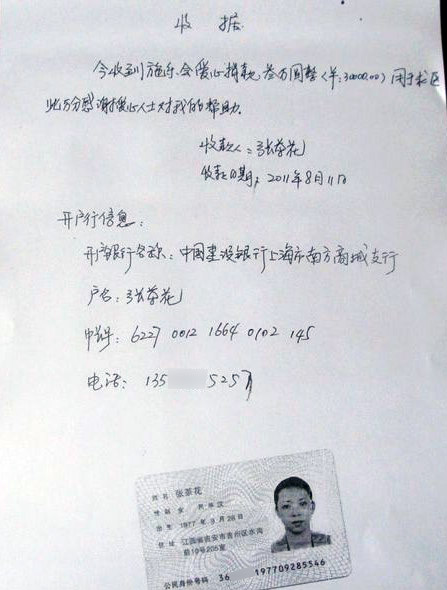 收据
今收到施乐会爱心捐款叁万圆整(¥:30000.00)用于求医
此万分感谢爱心人士对我的帮助.
收款人:张茶花
收款日期:2011年8月11日
开户行信息:
开户银行名称:中国建设银行上海市南方商城支行
户名:张茶花
帐号:6227 0012 1664 0102 145
电话:135 525
姓名 张茶花
性别 女 民族 汉
出生 1977年9月28日
住址 江西省吉安市吉州区水沟
前19号205室
公民身份号码 36 197709285546